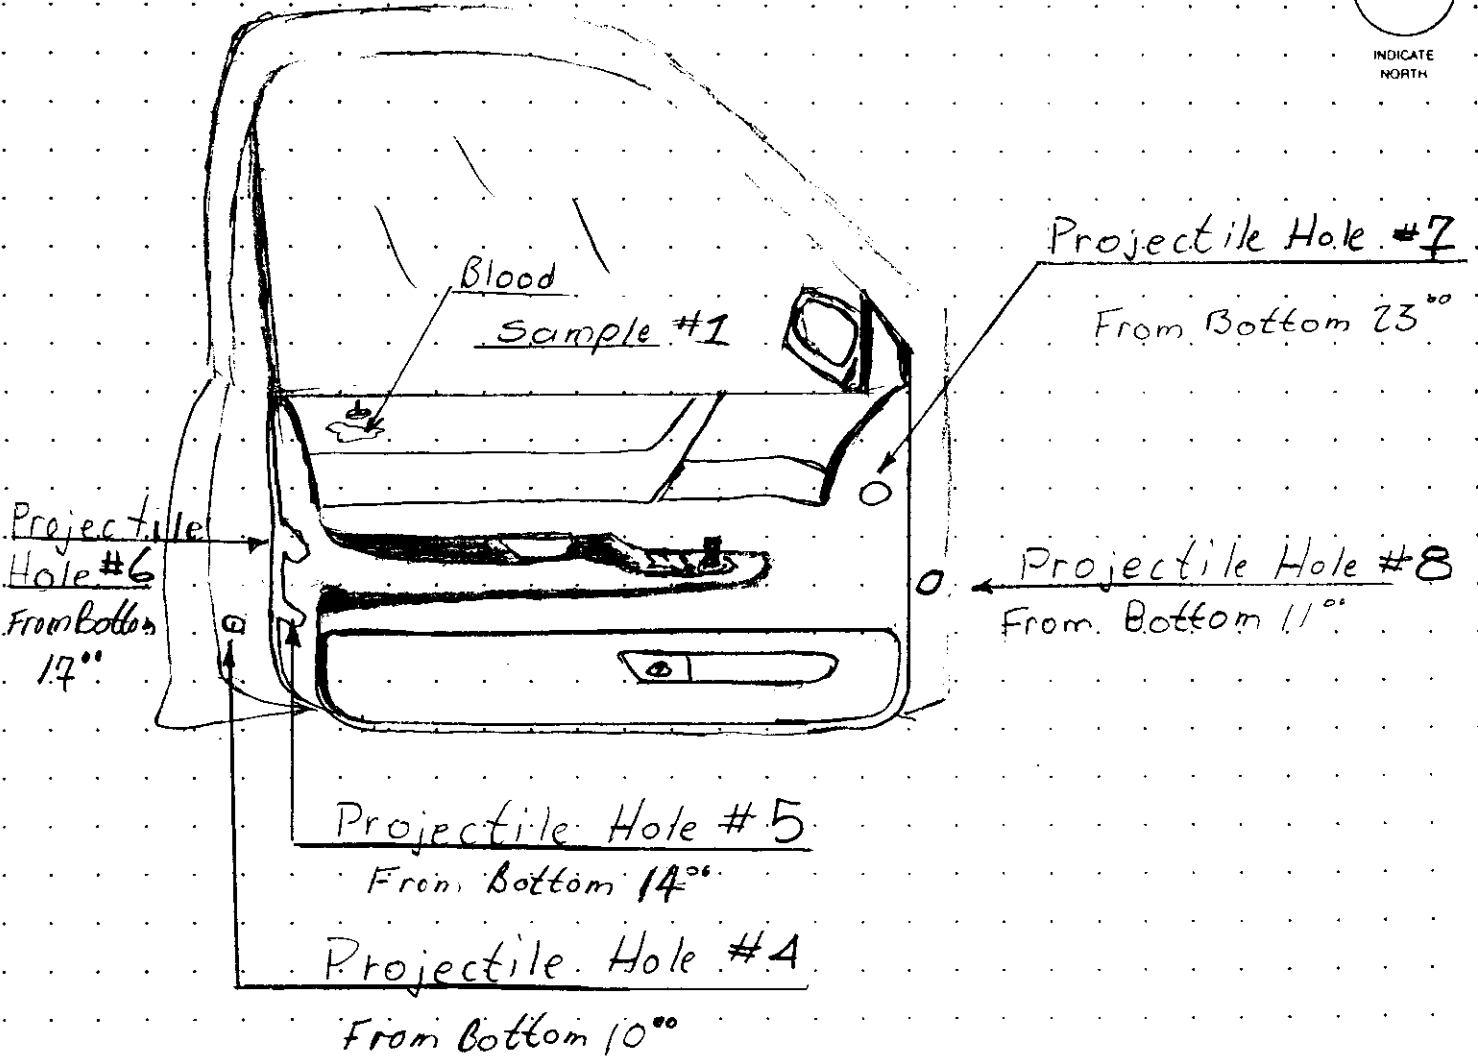 INDICATE
NORTH
Projectile Hole #7
From Bottom 23"
Blood
Sample #1
Projectile
Hole #6
From Bottom
17"
Projectile Hole #8
From Bottom 11"
Projectile Hole #5
From Bottom 14"
Projectile Hole #4
From Bottom 10"